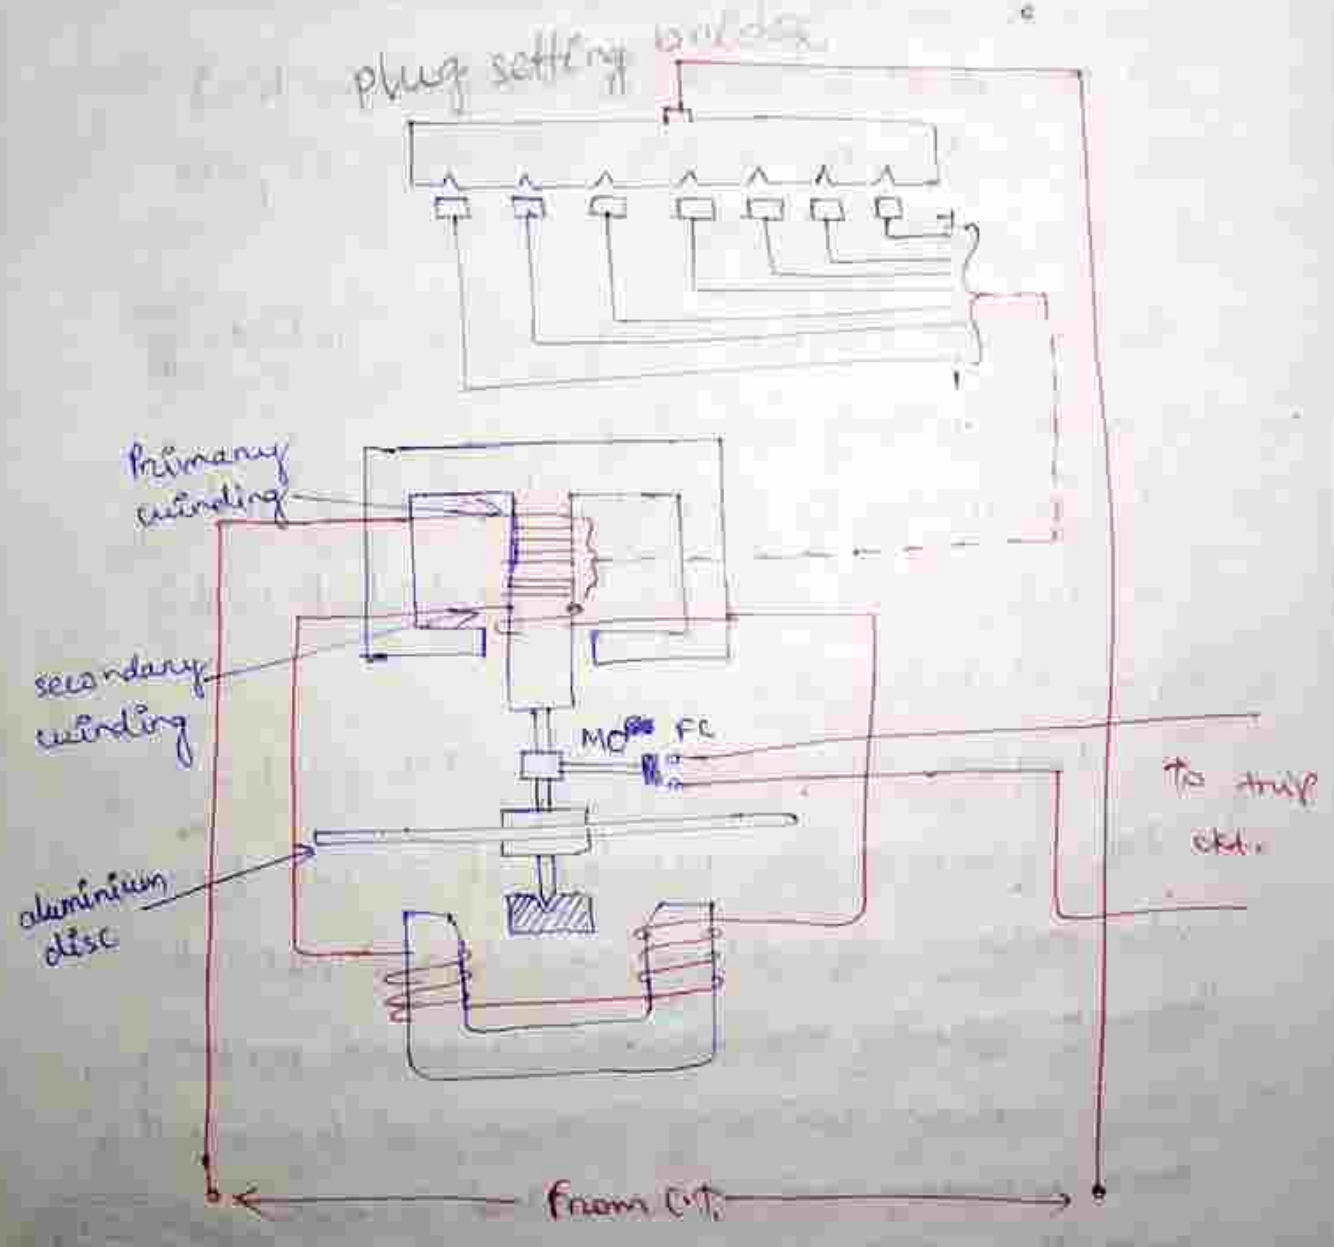 plug setting bridge
Primary
winding
secondary
winding
MC FC
To trip
ckt.
aluminium
disc
From C.T.